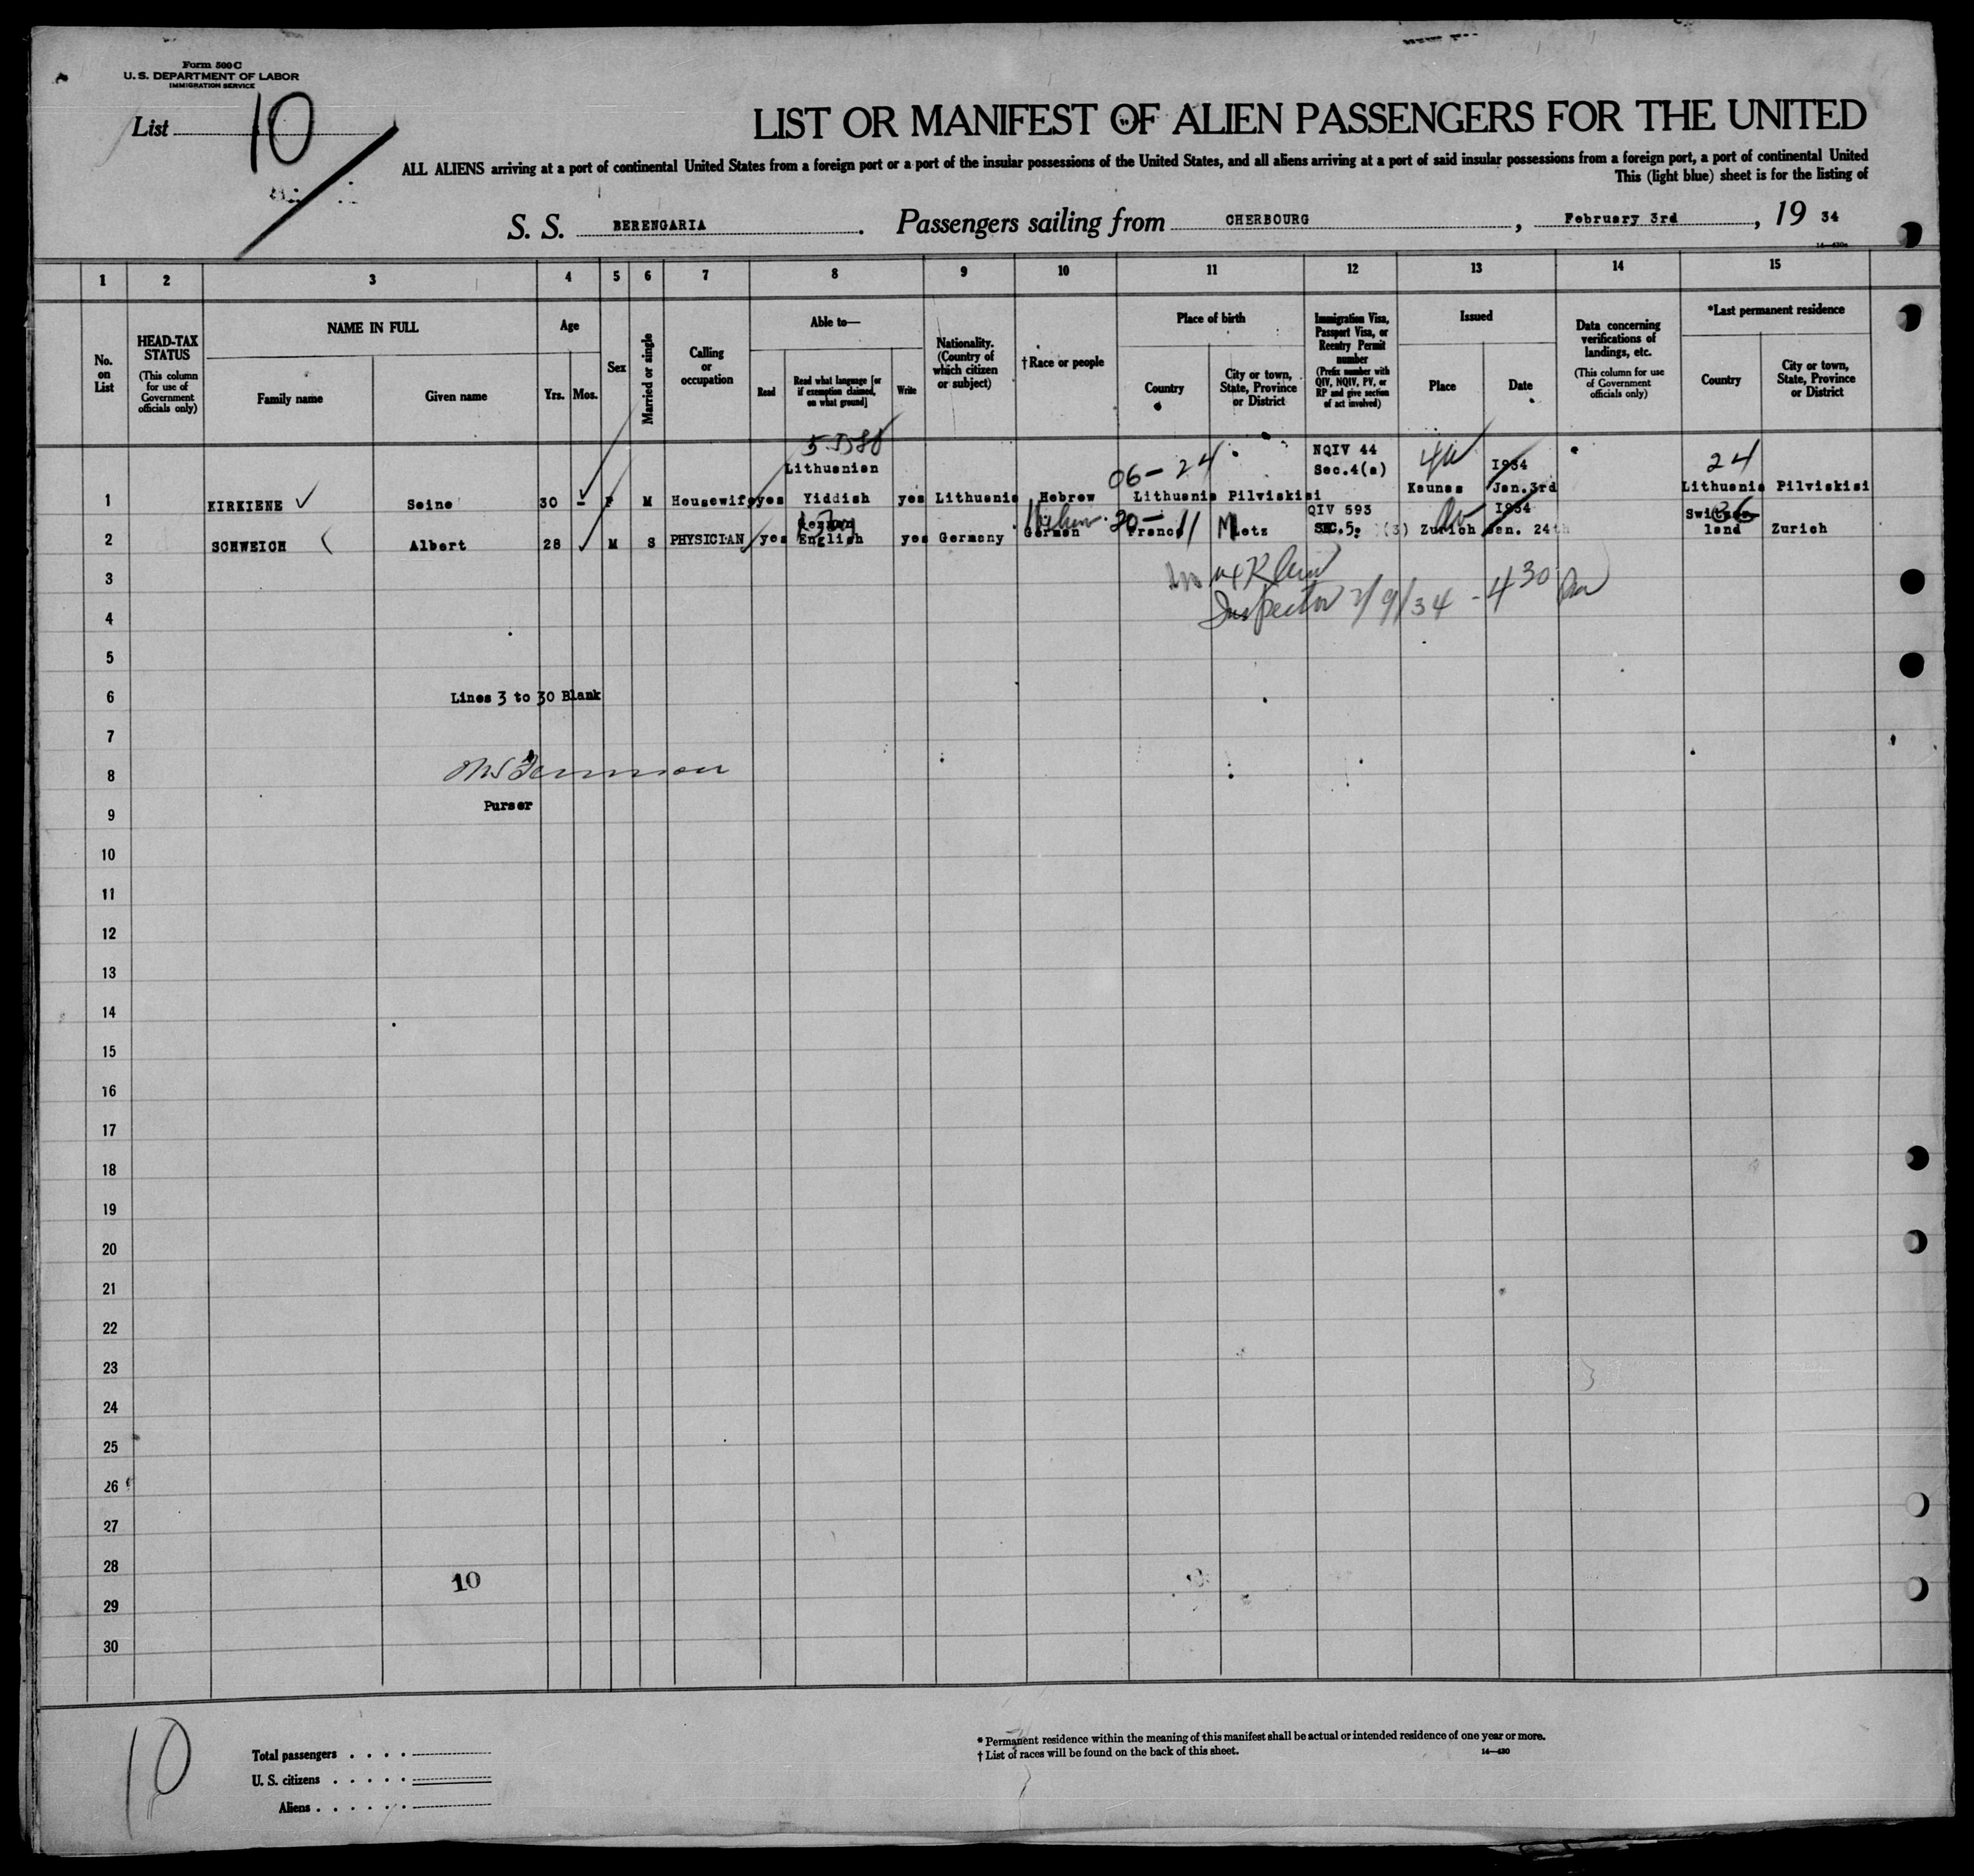 Form 500 C
U. S. DEPARTMENT OF LABOR
IMMIGRATION SERVICE
List 10
LIST OR MANIFEST OF ALIEN PASSENGERS FOR THE UNITED
ALL ALIENS arriving at a port of continental United States from a foreign port or a port of the insular possessions of the United States, and all aliens arriving at a port of said insular possessions from a foreign port, a port of continental United
This (light blue) sheet is for the listing of
S. S. BERENGARIA. Passengers sailing from CHERBOURG, February 3rd, 19 34
1 2 3 4 5 6 7 8 9 10 11 12 13 14 15
No. on List
HEAD-TAX STATUS (This column for use of Government officials only)
NAME IN FULL
Family name
Given name
Age
Yrs.
Mos.
Sex
Married or single
Calling or occupation
Able to—
Read
Read what language [or if exemption claimed, on what ground]
Write
Nationality. (Country of which citizen or subject)
†Race or people
Place of birth
Country
City or town, State, Province or District
Immigration Visa, Passport Visa, or Reentry Permit number (Prefix number with QIV, NQIV, PV, or RP and give section of act involved)
Issued
Place
Date
Data concerning verifications of landings, etc. (This column for use of Government officials only)
*Last permanent residence
Country
City or town, State, Province or District
06-24
NQIV 44
24
Lithuanian
Sec.4(a)
1934
1 KIRKIENE Seine 30 - F M Housewife yes Yiddish yes Lithuania Hebrew Lithuania Pilviskisi Kaunas Jan.3rd Lithuania Pilviskisi
German
Hebrew
30-11
QIV 593
1934
Switzer-
36
2 SCHWEICH Albert 28 M S PHYSICIAN yes English yes Germany German France Metz SEC.5. (3) Zurich Jan. 24th land Zurich
3
Inspector 2/9/34 - 4 30 pm
4
5
6 Lines 3 to 30 Blank
7
8
Purser
9
10
11
12
13
14
15
16
17
18
19
20
21
22
23
24
25
26
27
28
10
29
30
10
Total passengers
U. S. citizens
Aliens
* Permanent residence within the meaning of this manifest shall be actual or intended residence of one year or more.
† List of races will be found on the back of this sheet.
14—430